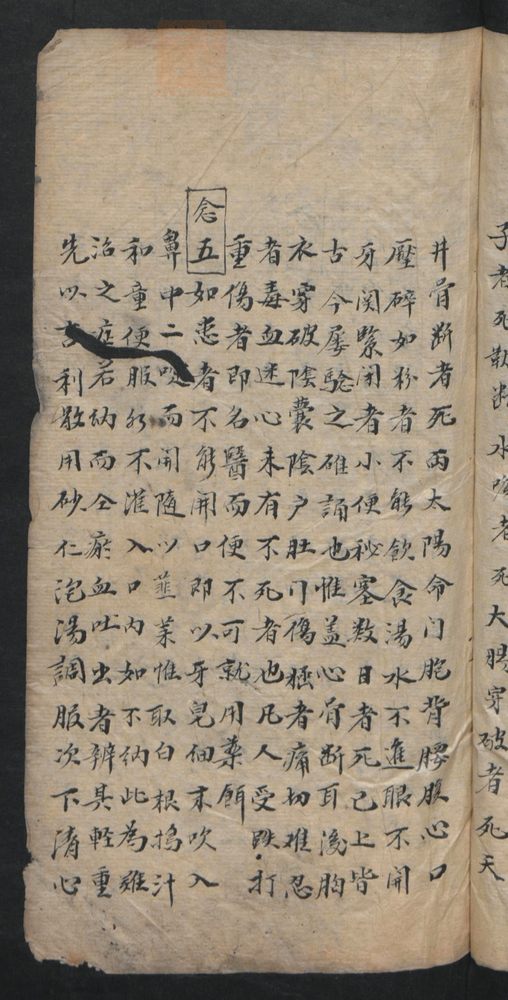 子者死散斷水嗅者死大腸穿破者死天
井骨斷者死兩太陽命门胞背腰腹心口
壓碎如粉者不能飲食湯水不進眼不開
牙関緊閉者小便秘塞数日者死已上皆
古今屡騐之碓誦也惟盖心骨断耳後胸
衣穿破陰囊陰户肚门傷極者痛切难忍
者毒血迷心未有不死者也凡人受跌打
重傷者即名醫而便不可就用藥餌
念五如患者不能開口即以牙皂細末吹入
鼻中二嗅而開随以韮菜惟取白根搗汁
和童便服外不漼入口内如不纳此為难
治之症若纳而仝瘀血吐出者辨其輕重
先以吉利散用砂仁泡湯調服次下清心